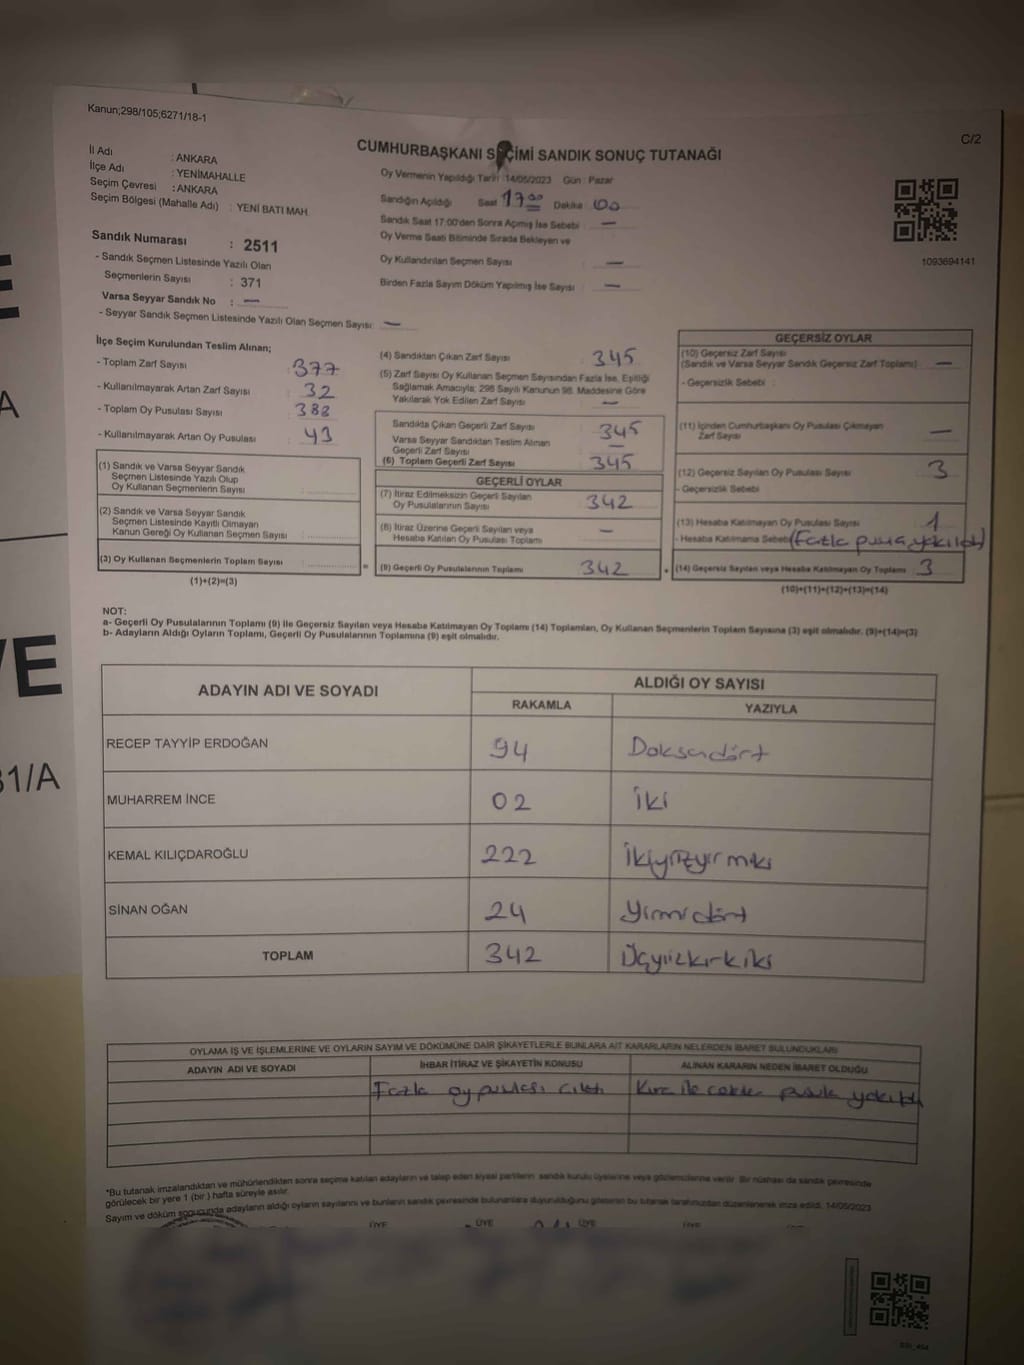 Kanun;298/105;6271/18-1
C/2
CUMHURBAŞKANI SEÇİMİ SANDIK SONUÇ TUTANAĞI
İl Adı : ANKARA
İlçe Adı : YENİMAHALLE
Seçim Çevresi : ANKARA
Seçim Bölgesi (Mahalle Adı) : YENİ BATI MAH.
Oy Vermenin Yapıldığı Tarih : 14/05/2023 Gün : Pazar
Sandığın Açıldığı Saat 17 00 Dakika 00
Sandık Saat 17:00'den Sonra Açımış İse Sebebi : —
Oy Verme Saati Bitiminde Sırada Bekleyen ve
Oy Kullandırılan Seçmen Sayısı : —
Birden Fazla Sayım Döküm Yapılmış İse Sayısı : —
1093694141
Sandık Numarası : 2511
- Sandık Seçmen Listesinde Yazılı Olan
Seçmenlerin Sayısı : 371
Varsa Seyyar Sandık No : —
- Seyyar Sandık Seçmen Listesinde Yazılı Olan Seçmen Sayısı: —
İlçe Seçim Kurulundan Teslim Alınan;
- Toplam Zarf Sayısı : 377
- Kullanılmayarak Artan Zarf Sayısı : 32
- Toplam Oy Pusulası Sayısı : 388
- Kullanılmayarak Artan Oy Pusulası : 43
(1) Sandık ve Varsa Seyyar Sandık
Seçmen Listesinde Yazılı Olup
Oy Kullanan Seçmenlerin Sayısı :
(2) Sandık ve Varsa Seyyar Sandık
Seçmen Listesinde Kayıtlı Olmayan
Kanun Gereği Oy Kullanan Seçmen Sayısı :
(3) Oy Kullanan Seçmenlerin Toplam Sayısı :
(1)+(2)=(3)
(4) Sandıktan Çıkan Zarf Sayısı : 345
(5) Zarf Sayısı Oy Kullanan Seçmen Sayısından Fazla İse, Eşitliği
Sağlamak Amacıyla; 298 Sayılı Kanunun 98. Maddesine Göre
Yakılarak Yok Edilen Zarf Sayısı : —
Sandıkta Çıkan Geçerli Zarf Sayısı : 345
Varsa Seyyar Sandıktan Teslim Alınan
Geçerli Zarf Sayısı : —
(6) Toplam Geçerli Zarf Sayısı : 345
GEÇERLİ OYLAR
(7) İtiraz Edilmeksizin Geçerli Sayılan
Oy Pusulalarının Sayısı : 342
(8) İtiraz Üzerine Geçerli Sayılan veya
Hesaba Katılan Oy Pusulası Toplamı : —
(9) Geçerli Oy Pusulalarının Toplamı : 342
GEÇERSİZ OYLAR
(10) Geçersiz Zarf Sayısı
(Sandık ve Varsa Seyyar Sandık Geçersiz Zarf Toplamı) : —
- Geçersizlik Sebebi :
(11) İçinden Cumhurbaşkanı Oy Pusulası Çıkmayan
Zarf Sayısı : —
(12) Geçersiz Sayılan Oy Pusulası Sayısı : 3
- Geçersizlik Sebebi
(13) Hesaba Katılmayan Oy Pusulası Sayısı : 1
- Hesaba Katılmama Sebebi (Fazla pusula yakıldı)
(14) Geçersiz Sayılan veya Hesaba Katılmayan Oy Toplamı : 3
(10)+(11)+(12)+(13)=(14)
NOT:
a- Geçerli Oy Pusulalarının Toplamı (9) ile Geçersiz Sayılan veya Hesaba Katılmayan Oy Toplamı (14) Toplamları, Oy Kullanan Seçmenlerin Toplam Sayısına (3) eşit olmalıdır. (9)+(14)=(3)
b- Adayların Aldığı Oyların Toplamı, Geçerli Oy Pusulalarının Toplamına (9) eşit olmalıdır.
ADAYIN ADI VE SOYADI
ALDIĞI OY SAYISI
RAKAMLA YAZIYLA
RECEP TAYYİP ERDOĞAN 94 Doksandört
MUHARREM İNCE 02 İki
KEMAL KILIÇDAROĞLU 222 İkiyüzyirmiki
SİNAN OĞAN 24 Yirmidört
TOPLAM 342 Üçyüzkırkiki
OYLAMA İŞ VE İŞLEMLERİNE VE OYLARIN SAYIM VE DÖKÜMÜNE DAİR ŞİKAYETLERLE BUNLARA AİT KARARLARIN NELERDEN İBARET BULUNDUKLARI
ADAYIN ADI VE SOYADI İHBAR İTİRAZ VE ŞİKAYETİN KONUSU ALINAN KARARIN NEDEN İBARET OLDUĞU
Fazla oy pusulası çıktı Kura ile çekilen pusula yakıldı
*Bu tutanak imzalandıktan ve mühürlendikten sonra seçime katılan adayların ve talep eden siyasi partilerin sandık kurulu üyelerine veya gözlemcilerine verilir. Bir nüshası da sandık çevresinde
görülecek bir yere 1 (bir ) hafta süreyle asılır.
Sayım ve döküm sonucunda adayların aldığı oyların sayılarını ve bunların sandık çevresinde bulunanlara duyurulduğunu gösteren bu tutanak tarafımızdan düzenlenerek imza edildi. 14/05/2023
ÜYE ÜYE ÜYE ÜYE
E
A
VE
31/A